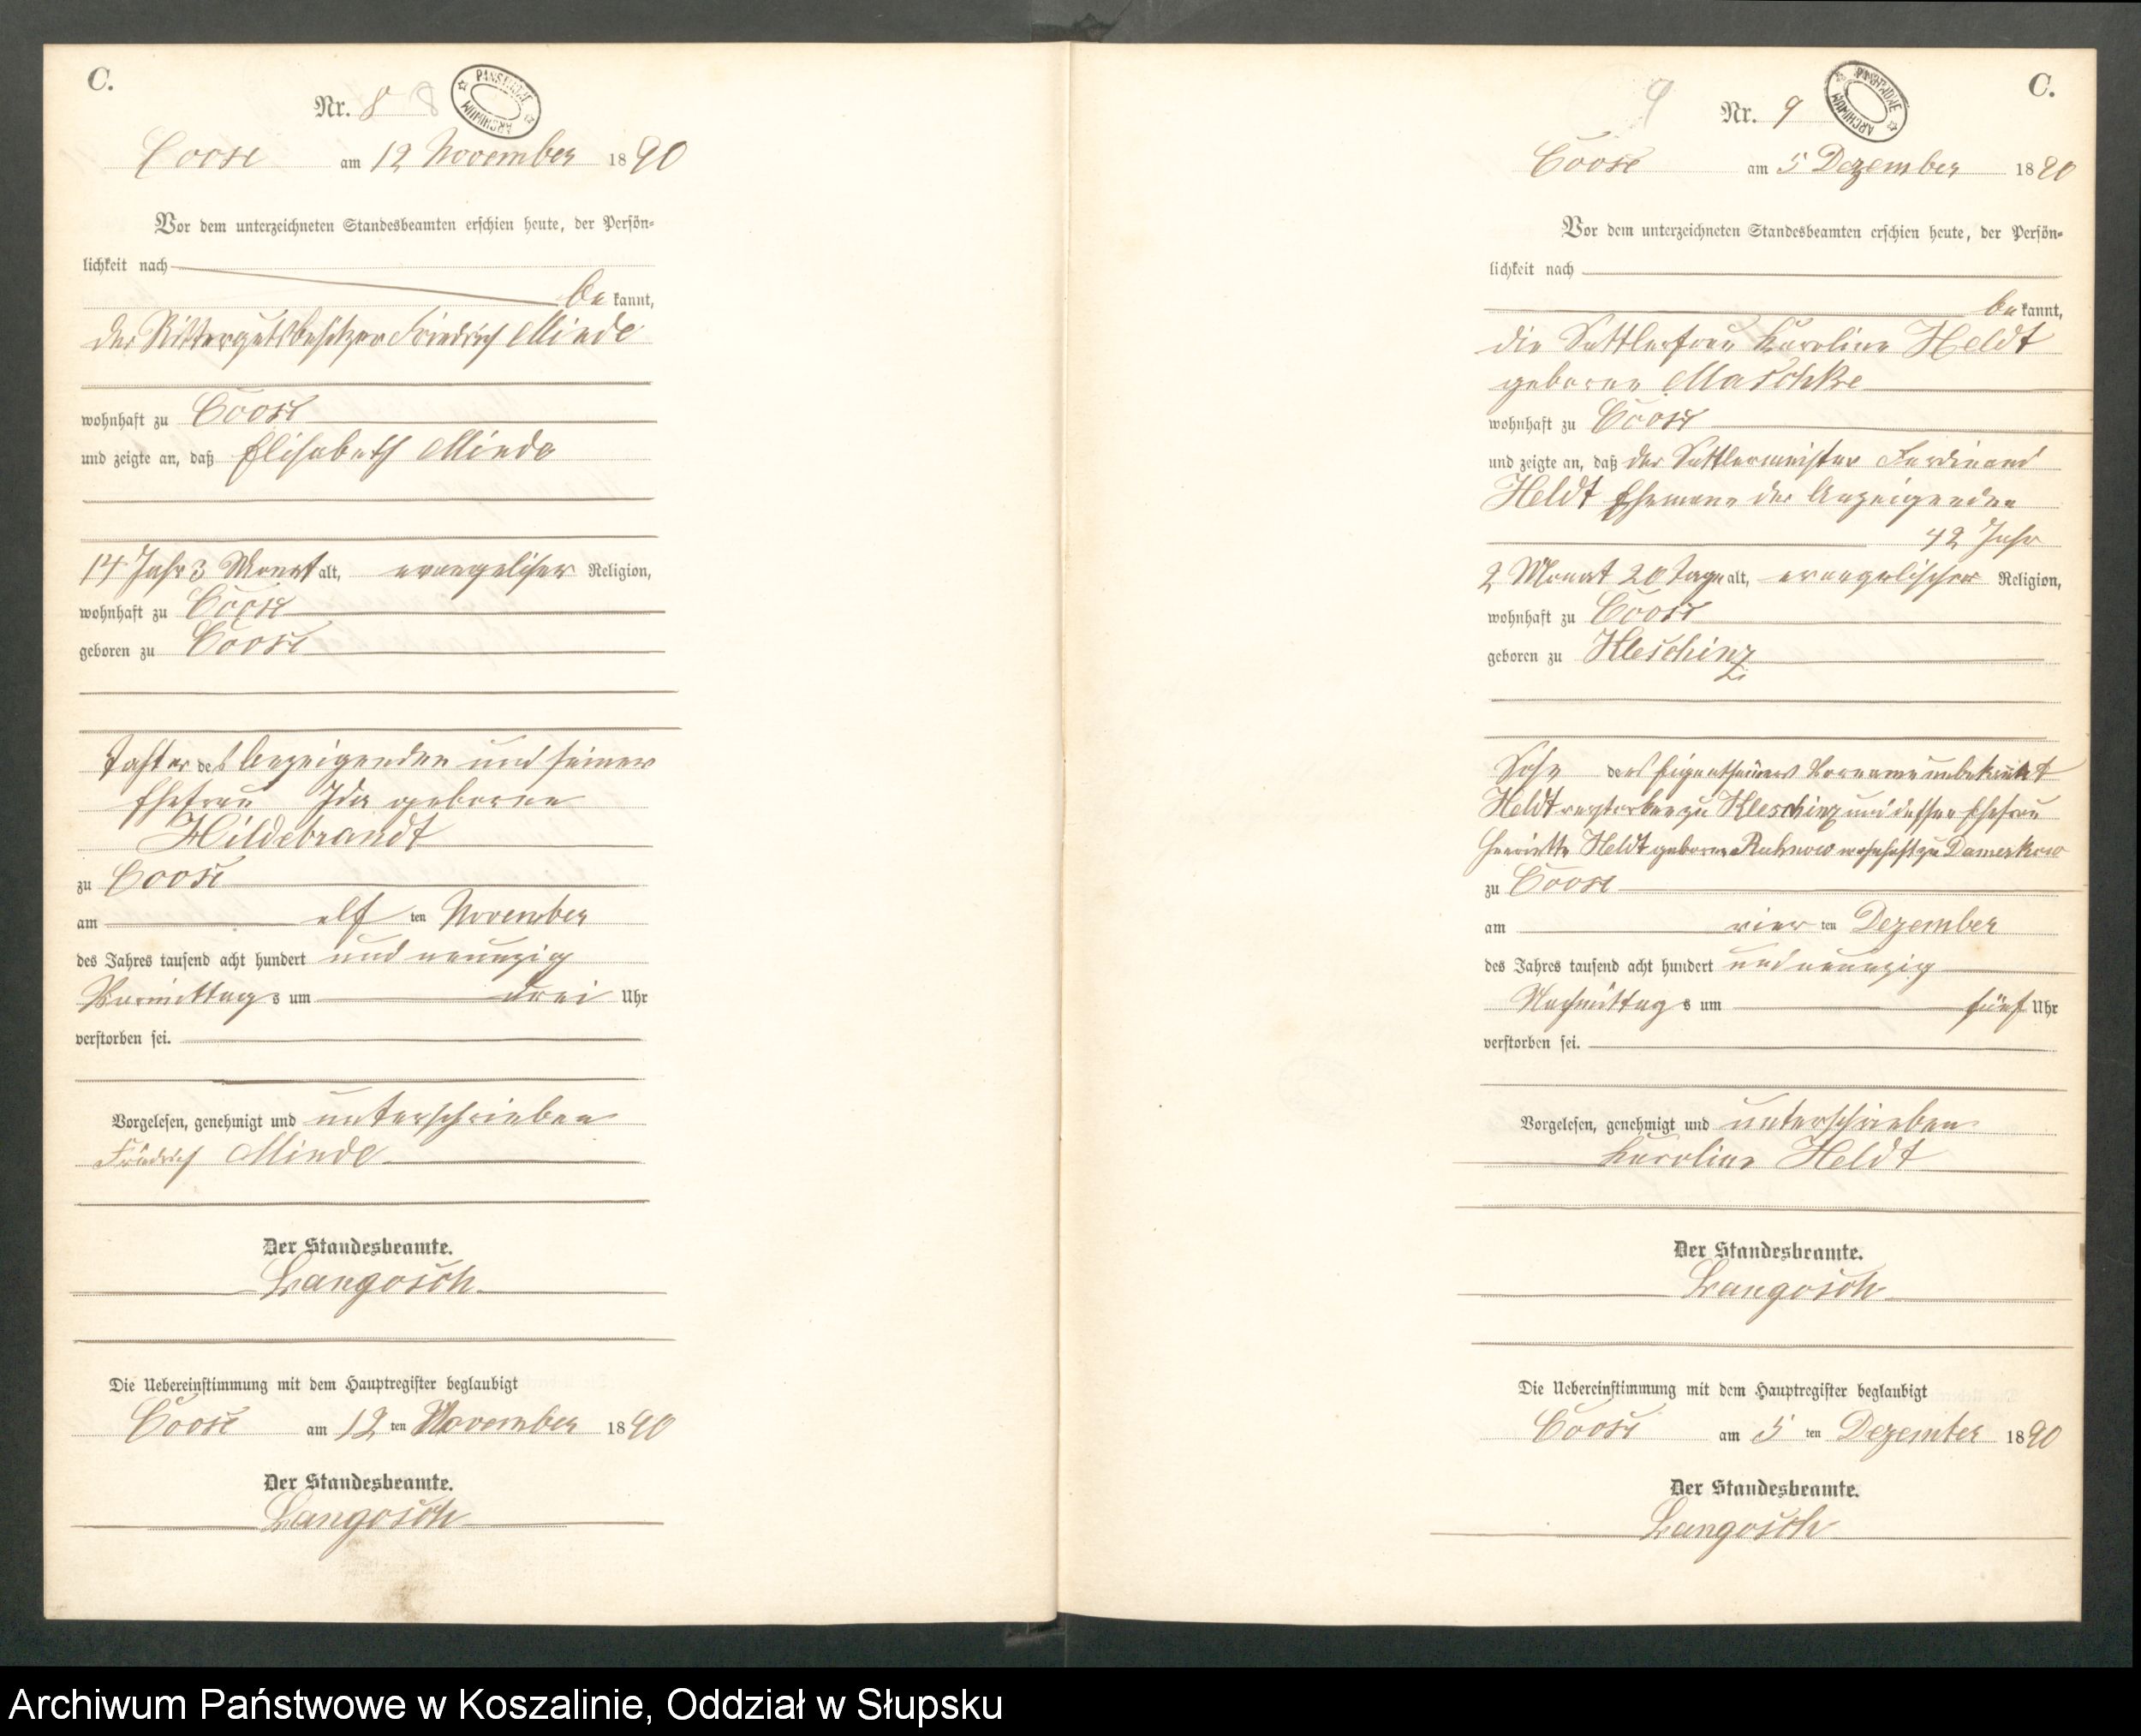 C.
Nr. 8 8
PANSTWOWE ARCHIWUM
Coose am 12 November 1890
Vor dem unterzeichneten Standesbeamten erschien heute, der Persön=
lichkeit nach
be kannt,
der Rittergutsbesitzer Friedrich Minde
wohnhaft zu Coose
und zeigte an, daß Elisabeth Minde
14 Jahr 3 Monat alt, evangelischer Religion,
wohnhaft zu Coose
geboren zu Coose
Tochter des Anzeigenden und seiner
Ehefrau Ida geborene
Hildebrandt
zu Coose
am elf ten November
des Jahres tausend acht hundert und neunzig
Vormittags um drei Uhr
verstorben sei.
Vorgelesen, genehmigt und unterschrieben
Friedrich Minde
Der Standesbeamte.
Langosch
Die Uebereinstimmung mit dem Hauptregister beglaubigt
Coose am 12 ten November 1890
Der Standesbeamte.
Langosch
C.
9 Nr. 9
PANSTWOWE ARCHIWUM
Coose am 5 Dezember 1890
Vor dem unterzeichneten Standesbeamten erschien heute, der Persön=
lichkeit nach
be kannt,
die Sattlerfrau Karoline Heldt
geborene Maschke
wohnhaft zu Coose
und zeigte an, daß der Sattlermeister Ferdinand
Heldt Ehemann der Anzeigenden
42 Jahr
2 Monat 20 Tage alt, evangelischer Religion,
wohnhaft zu Coose
geboren zu Kleschinz
Sohn des Eigenthümers Vorname unbekannt
Heldt verstorben zu Kleschinz und dessen Ehefrau
Henriette Heldt geborne Ruhnow wohnhaft zu Damerkow
zu Coose
am vier ten Dezember
des Jahres tausend acht hundert und neunzig
Nachmittags um fünf Uhr
verstorben sei.
Vorgelesen, genehmigt und unterschrieben
Karoline Heldt
Der Standesbeamte.
Langosch
Die Uebereinstimmung mit dem Hauptregister beglaubigt
Coose am 5 ten Dezember 1890
Der Standesbeamte.
Langosch
Archiwum Państwowe w Koszalinie, Oddział w Słupsku